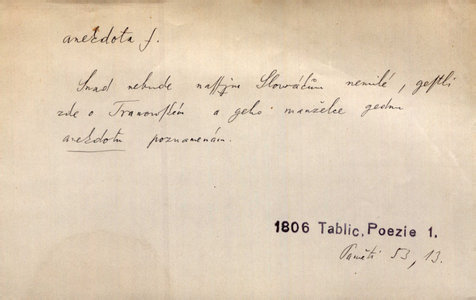 anekdota f.
Snad nebude nassjm Slowákům nemilé, gestli
zde o Tranowském a geho manželce gednu
anekdotu poznamenám.
1806 Tablic, Poezie 1.
Paměti 53, 13.